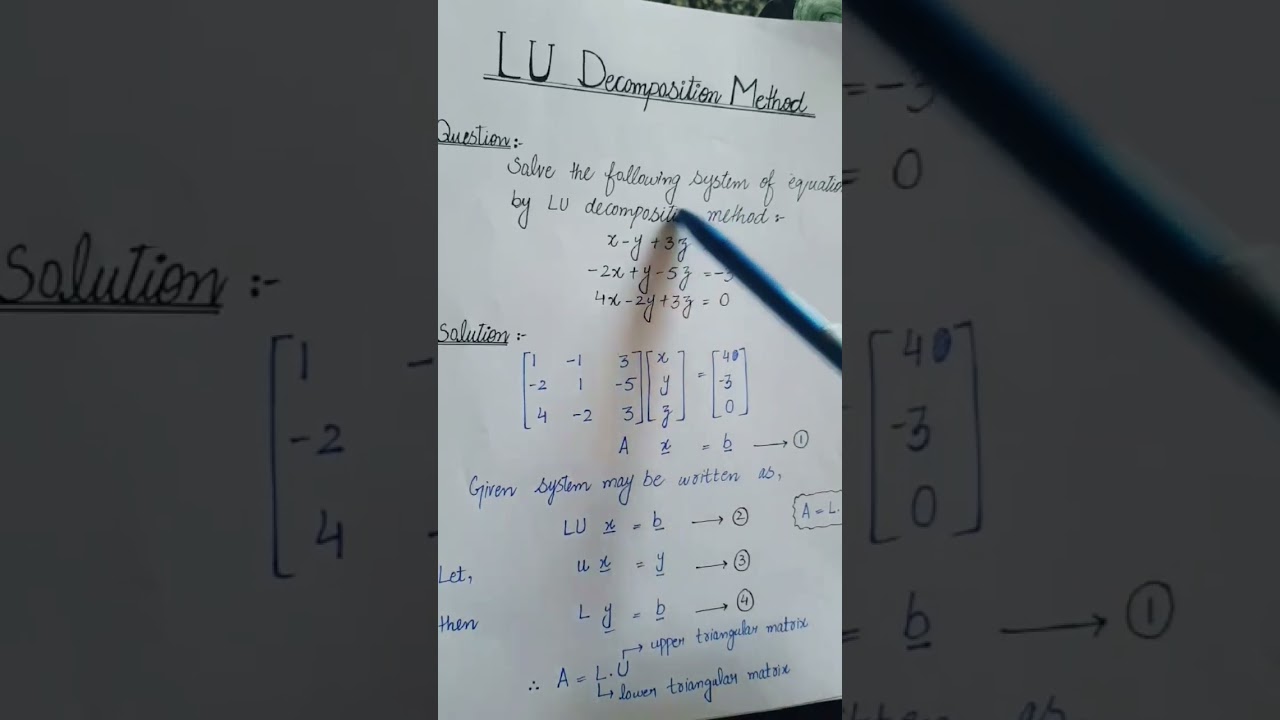 LU Decomposition Method
Question:-
Solve the following system of equatio
by LU decompositi method:-
x-y+3z
-2x+y-5z =-3
4x-2y+3z = 0
Solution:-
[1 -1 3] [x] = [4]
[-2 1 -5] [y] [-3]
[4 -2 3] [z] [0]
A x = b → ①
Given system may be written as,
LU x = b → ②
A = L.
Let, u x = y → ③
then L y = b → ④
∴ A = L.U
→ upper triangular matrix
↳ lower triangular matrix